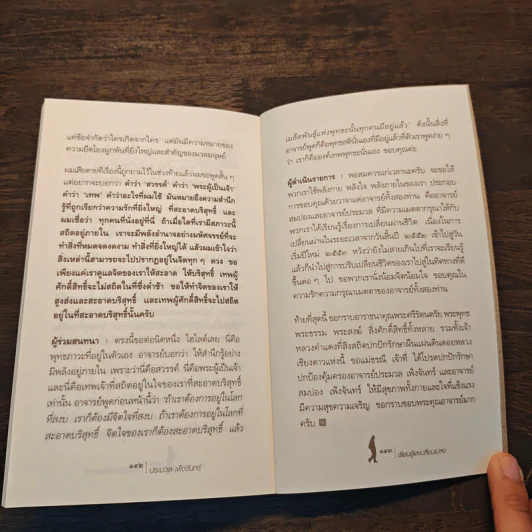 แต่ชื่อจำกัดว่าใครเกิดจากใคร แต่มันมีความหมายของ
ความยึดโยงผูกพันที่ยิ่งใหญ่และสำคัญของมวลมนุษย์
ผมเสียดายที่เรื่องนี้ถูกถามไว้ในช่วงท้ายแล้วผมขอพูดสั้น ๆ
แต่อยากจะบอกว่า คำว่า 'สวรรค์' คำว่า 'พระผู้เป็นเจ้า'
คำว่า 'เทพ' คำว่าอะไรที่ผมใช้ มันหมายถึงความสำนึก
รู้ที่ถูกเรียกว่าความรักที่ยิ่งใหญ่ ที่สะอาดบริสุทธิ์ และ
ผมเชื่อว่า ทุกคนที่นั่งอยู่ที่นี่ ถ้าเมื่อใดที่เรามีสภาวะนี้
สถิตอยู่ภายใน เราจะมีพลังอำนาจอย่างมหัศจรรย์ที่จะ
ทำสิ่งที่หมดจดงดงาม ทำสิ่งที่ยิ่งใหญ่ได้ แล้วผมเข้าใจว่า
สิ่งเหล่านี้สามารถจะไปปรากฏอยู่ในจิตทุก ๆ ดวง ขอ
เพียงแค่เราดูแลจิตของเราให้สะอาด ให้บริสุทธิ์ เทพผู้
ศักดิ์สิทธิ์จะไม่สถิตในที่ซึ่งต่ำช้า ขอให้ทำจิตของเราให้
สูงส่งและสะอาดบริสุทธิ์ และเทพผู้ศักดิ์สิทธิ์จะไปสถิต
อยู่ในที่สะอาดบริสุทธิ์นั้นครับ
ผู้ร่วมสนทนา : ตรงนี้ขอต่อนิดหนึ่ง ไฮไลต์เลย นี่คือ
พุทธภาวะที่อยู่ในตัวเอง อาจารย์บอกว่า ให้สำนึกรู้อย่าง
มีพลังอยู่ภายใน เพราะว่านี่คือสวรรค์ นี่คือพระผู้เป็นเจ้า
และนี่คือเทพเจ้าที่สถิตอยู่ในใจของเราที่สะอาดบริสุทธิ์
เท่านั้น อาจารย์พูดก่อนหน้านี้ว่า 'ถ้าเราต้องการอยู่ในโลก
ที่สงบ เราก็ต้องมีจิตใจที่สงบ ถ้าเราต้องการอยู่ในโลกที่
สะอาดบริสุทธิ์ จิตใจของเราก็ต้องสะอาดบริสุทธิ์ แล้ว
๑๔๒ ประมวล เพ็งจันทร์
เมล็ดพันธุ์แห่งพุทธะนั้นทุกคนมีอยู่แล้ว' ดังนั้นสิ่งที่
อาจารย์พูดก็คือพุทธสตินั่นเองที่มีอยู่ที่ตัวเราพูดง่าย ๆ
ว่า เราก็คือองค์เทพพุทธะนั่นเอง ขอบคุณค่ะ
ผู้ดำเนินรายการ : พอสมควรแก่เวลานะครับ จะขอให้
พวกเราใช้พลังกาย พลังใจ พลังภายในของเรา ประกอบ
การขอบคุณด้วยวาจาแด่อาจารย์ทั้งสองท่าน คืออาจารย์
สมปองและอาจารย์ประมวล ที่มีความเมตตากรุณาให้กับ
พวกเราได้เรียนรู้เรื่องการเปลี่ยนผ่านชีวิต เนื่องในการ
เปลี่ยนผ่านในระยะเวลาจากวันสิ้นปี ๒๕๕๑ เข้าไปสู่วัน
เริ่มปีใหม่ ๒๕๕๒ หวังว่ายังไม่สายเกินไปที่เราจะเรียนรู้
แล้วก็นำไปสู่การปรับเปลี่ยนชีวิตของเราไปสู่ในทิศทางที่ดี
ขึ้นต่อ ๆ ไป ขอพวกเรานั่งน้อมจิตน้อมใจ ขอบคุณใน
ความรักความกรุณาเมตตาของอาจารย์ทั้งสองท่าน
ท้ายที่สุดนี้ ขอกราบอาราธนาคุณพระศรีรัตนตรัย พระพุทธ
พระธรรม พระสงฆ์ สิ่งศักดิ์สิทธิ์ทั้งหลาย รวมทั้งเจ้า
หลวงคำแดงที่สิงสถิตปกปักรักษาผืนแผ่นดินดอยหลวง
เชียงดาวแห่งนี้ ขอแม่ธรณี เจ้าที่ ได้โปรดปกปักรักษา
ปกป้องคุ้มครองอาจารย์ประมวล เพ็งจันทร์ และอาจารย์
สมปอง เพ็งจันทร์ ให้มีสุขภาพทั้งกายและใจที่แข็งแรง
มีความสุขความเจริญ ขอกราบขอบพระคุณอาจารย์มาก
ครับ
๑๔๓ เรียนรู้และเปลี่ยนแปลง